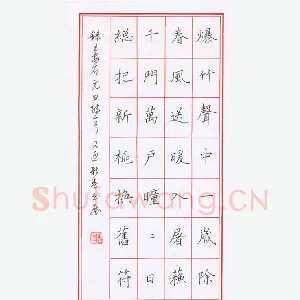 爆竹聲中一歲除
春風送暖入屠蘇
千門萬戶曈〻日
總把新桃換舊符
錄王安石元日詩一首
Shufawang.CN